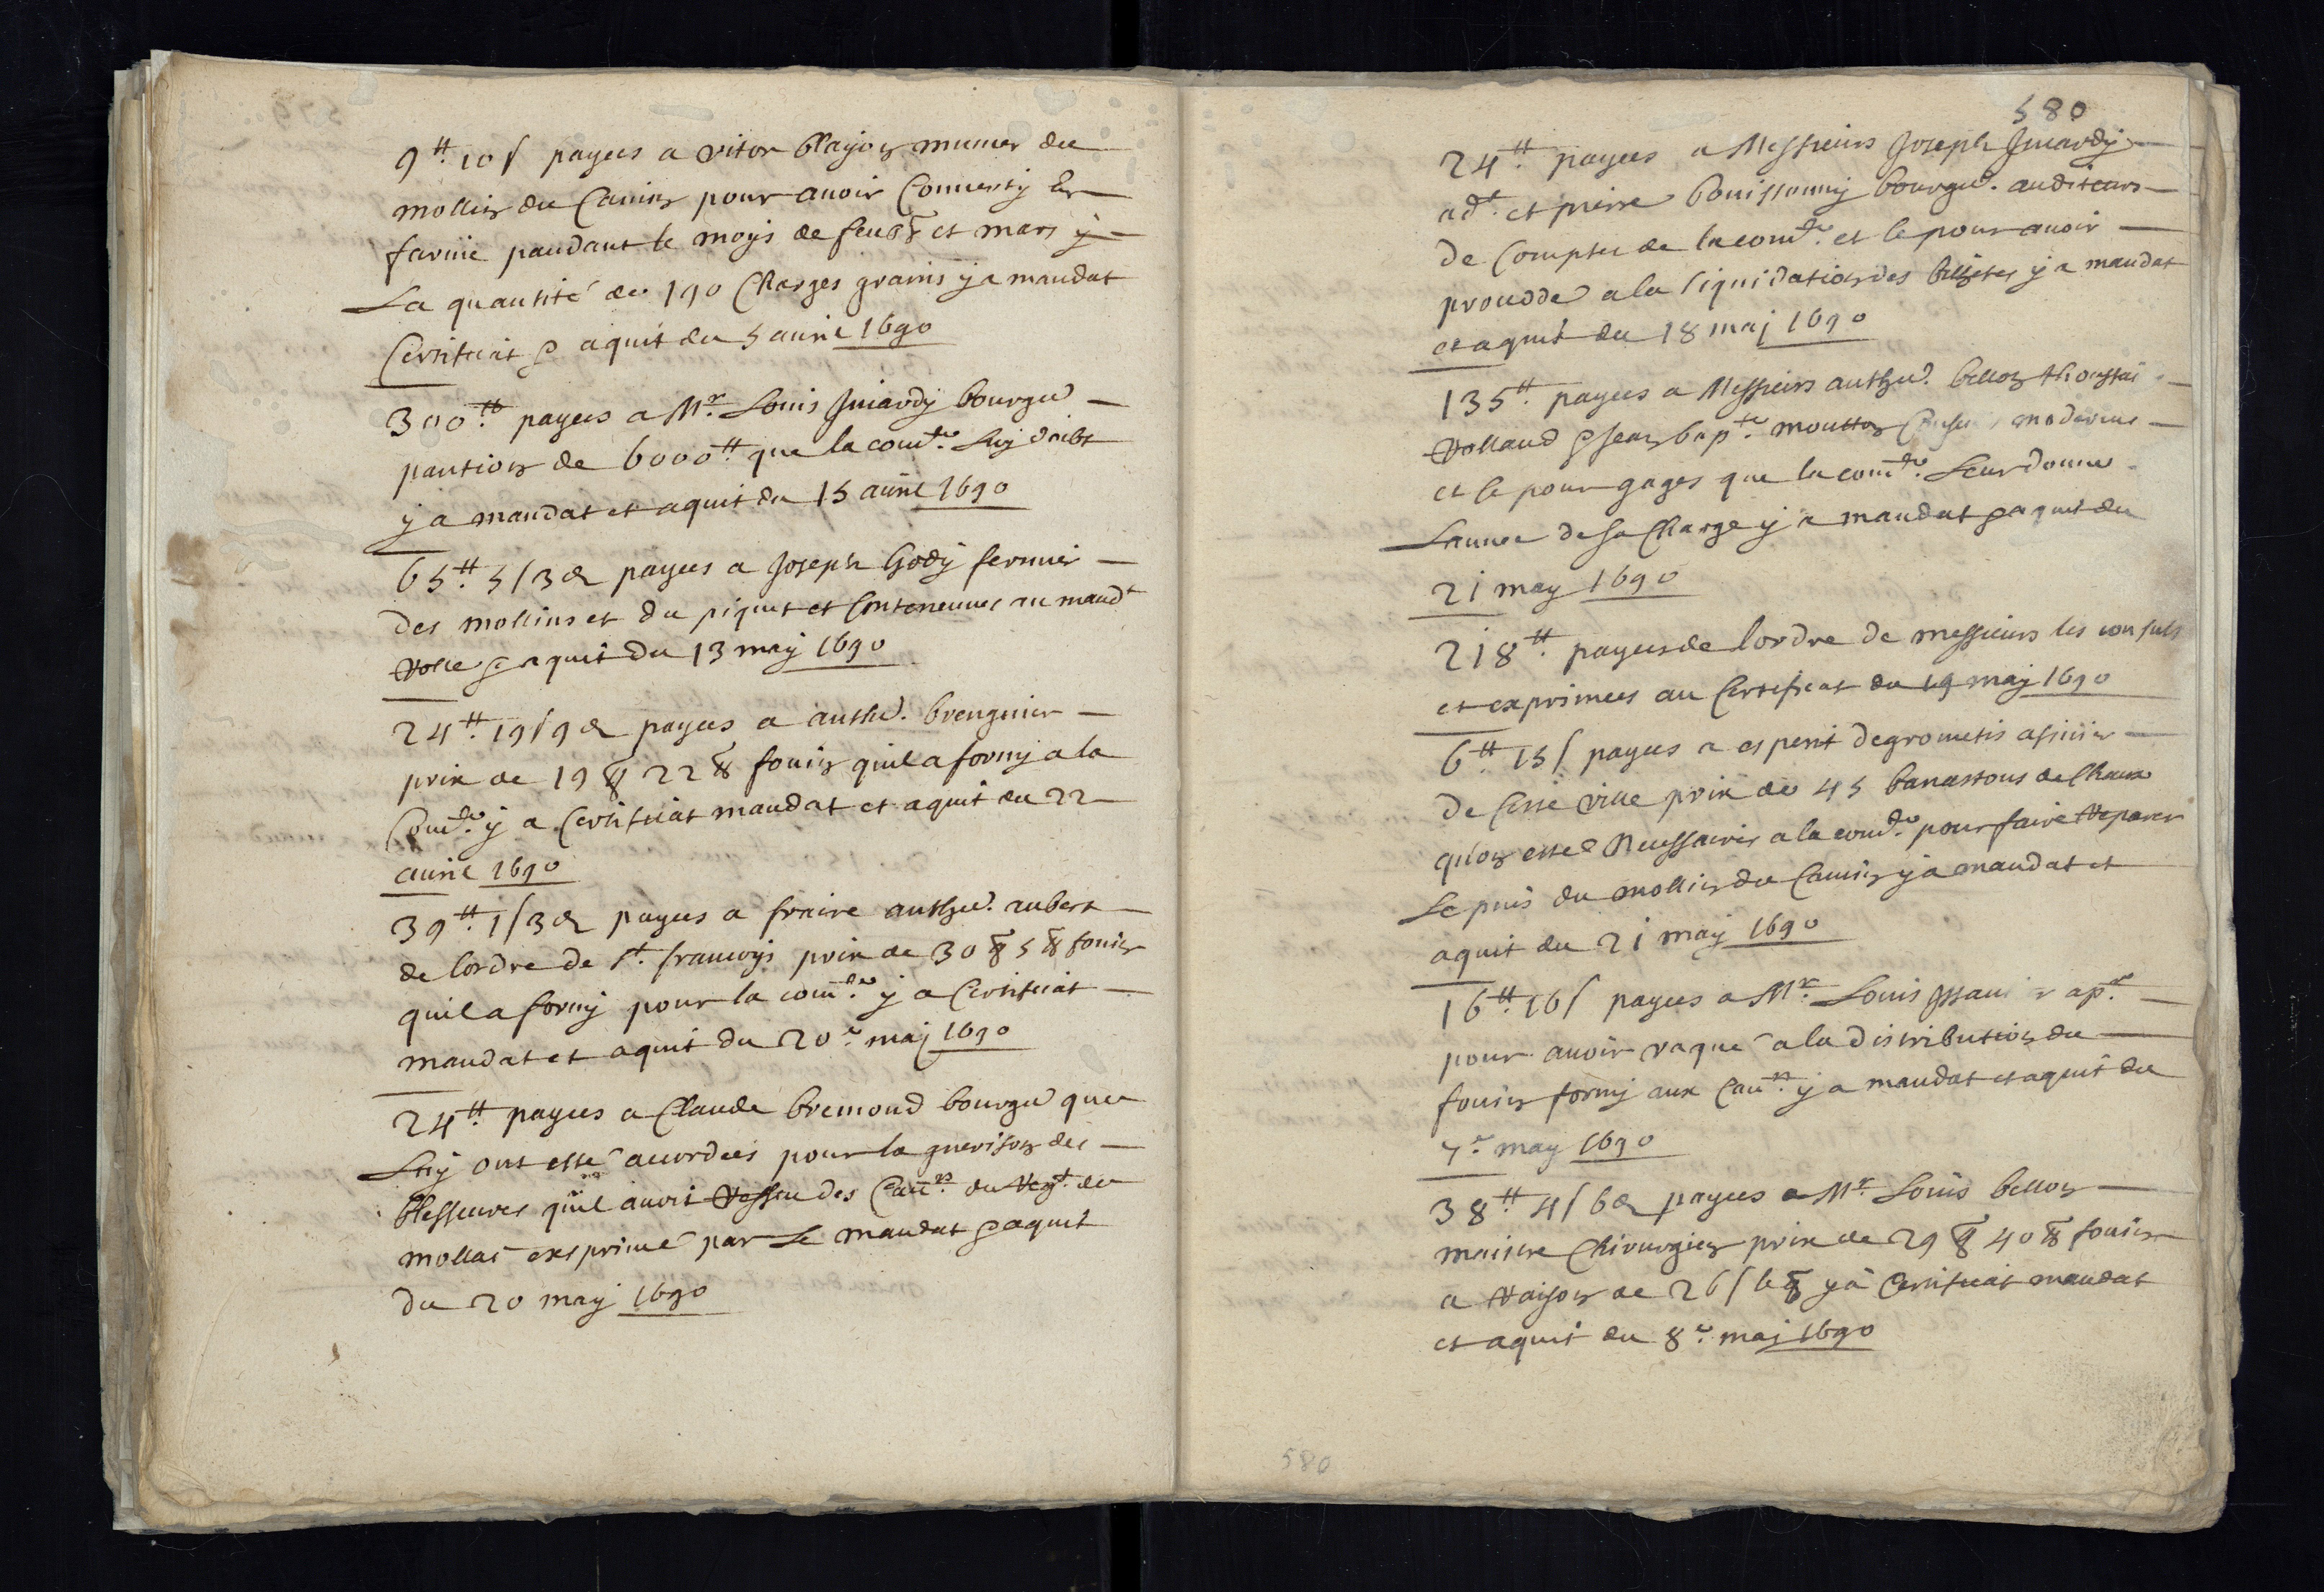 9tt 10s payees a vitor blayon munier du
mollin du Camin pour avoir Converty En
farine pandant le moys de feur et mars y
La quantité de 190 Charges grains y a mandat
Certificat & aquit du 5 avril 1690
300tt payees a Mr Louis Juiardy bourgs
pantion de 6000tt que la comte Luy doibt
y a mandat et aquit du 15 avril 1690
65tt 5s 3d payees a Joseph Gody fermier
des mollins et du piquet et Conteneues au mandt
Rolle & aquit du 13 may 1690
24tt 19s 9d payees a anthe brenguier
prix de 19 22 fouin quil a forny a la
Comte y a Certificat mandat et aquit du 22
avril 1690
39tt 1s 3d payees a fraire anthe aubert
de lordre de st francoys prix de 30 5 fouin
quil a forny pour la comte y a Certificat
mandat et aquit du 20e maj 1690
24tt payees a Claude bremond bourgs que
Luy ont esté acordees pour la guerison des
blesseures quil avoit Resseu des Cauers du Regt de
mollac exsprimé par Le mandat & aquit
du 20 may 1690
580
24tt payees a Messieurs Joseph Juiardy
adt et pierre bouissouny bourgs auditeurs
de Comptes de la comte et le pour avoir
proucdé a la liquidation des billetes y a mandat
et aquit du 18 maj 1690
135tt payees a Messieurs anthe bellon
Rolland & Jean bapte moutton modernes
et le pour gages que la comte Leur donne
Lannee de sa Charge y a mandat & aquit du
21 may 1690
218tt payees de lordre de messieurs les consuls
et exprimees au Certificat du 19 maj 1690
6tt 15s payees a esperit degrometis asinier
de Ceste ville prix de 45 banastons de Chaux
qilon esté Neussaires a la comte pour faire Reparer
Le puis du mollin du Camin y a mandat et
aquit du 21 maj 1690
16tt 16s payees a Mr Louis apre
pour avoir vaqué a la distribution du
fouin forny aux Cauers y a mandat et aquit du
7e may 1690
38tt 4s 6d payees a Mr Louis bellon
maistre Chirurgien prix de 29 40 fouin
a Raison de 26s le y a Certificat mandat
et aquit du 8e maj 1690
580